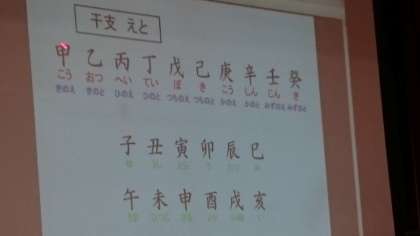 干支 えと
甲 乙 丙 丁 戊 己 庚 辛 壬 癸
こう おつ へい てい ぼ き こう しん じん き
きのえ きのと ひのえ ひのと つちのえ つちのと かのえ かのと みずのえ みずのと
子 丑 寅 卯 辰 巳
午 未 申 酉 戌 亥